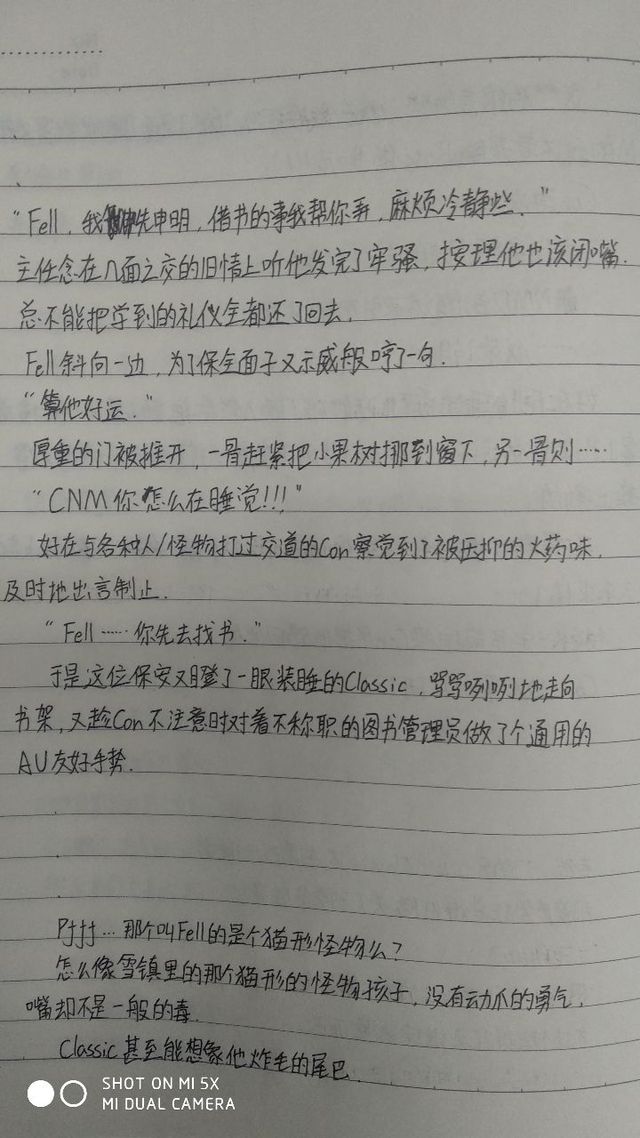 "Fell，我先申明，借书的事我帮你弄，麻烦冷静些．"
主任念在几面之交的旧情上听他发完了牢骚，按理他也该闭嘴．
总不能把学到的礼仪全都还了回去．
Fell斜向一边，为了保全面子又示威般哼了一句．
"算他好运．"
厚重的门被推开，一骨赶紧把小果树挪到窗下，另一骨则……
"CNM你怎么在睡觉!!!"
好在与各种人/怪物打过交道的Con察觉到了被压抑的火药味，
及时地出言制止．
"Fell……你先去找书．"
于是这位保安又瞪了一眼装睡的Classic，骂骂咧咧地走向
书架，又趁Con不注意时对着不称职的图书管理员做了个通用的
AU友好手势．
Pfff…那个叫Fell的是个猫形怪物么？
怎么像雪镇里的那个猫形的怪物孩子，没有动爪的勇气，
嘴却不是一般的毒．
Classic甚至能想像他炸毛的尾巴．
SHOT ON MI 5X
MI DUAL CAMERA